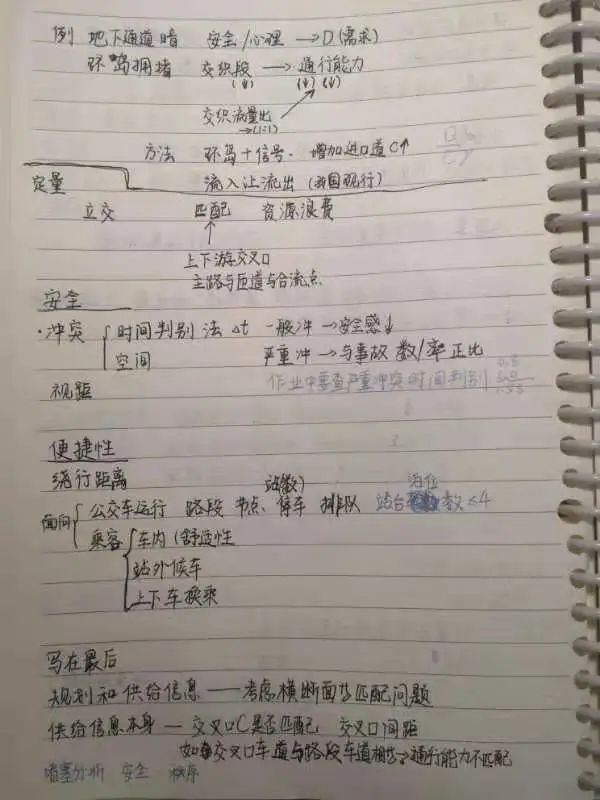 例 地下通道暗 安全/心理 → D(需求)
环岛拥堵 交织段 → 通行能力
(↓) (↓) (↓)
交织流量比
→(1:1)
方法 环岛+信号. 增加进口道C↑
流入让流出 (我国现行)
定量
立交 匹配 资源浪费
↑
上下游交叉口
主路与匝道与合流点
安全
·冲突 { 时间判别法 Δt 一般冲→安全感↓
空间 严重冲→与事故数/率正比
作业中要查严重冲突时间判别
视距
便捷性
绕行距离
面向 { 公交车运行 路段 节点、停车(站数) 排队 站台泊位数≤4
乘客 { 车内(舒适性
站外候车
上下车换乘
写在最后
规划和供给信息——考虑横断面等匹配问题
供给信息本身——交叉口C是否匹配 交叉口间距
如每交叉口车道与路段车道相等→通行能力不匹配
堵塞分析 安全 秩序